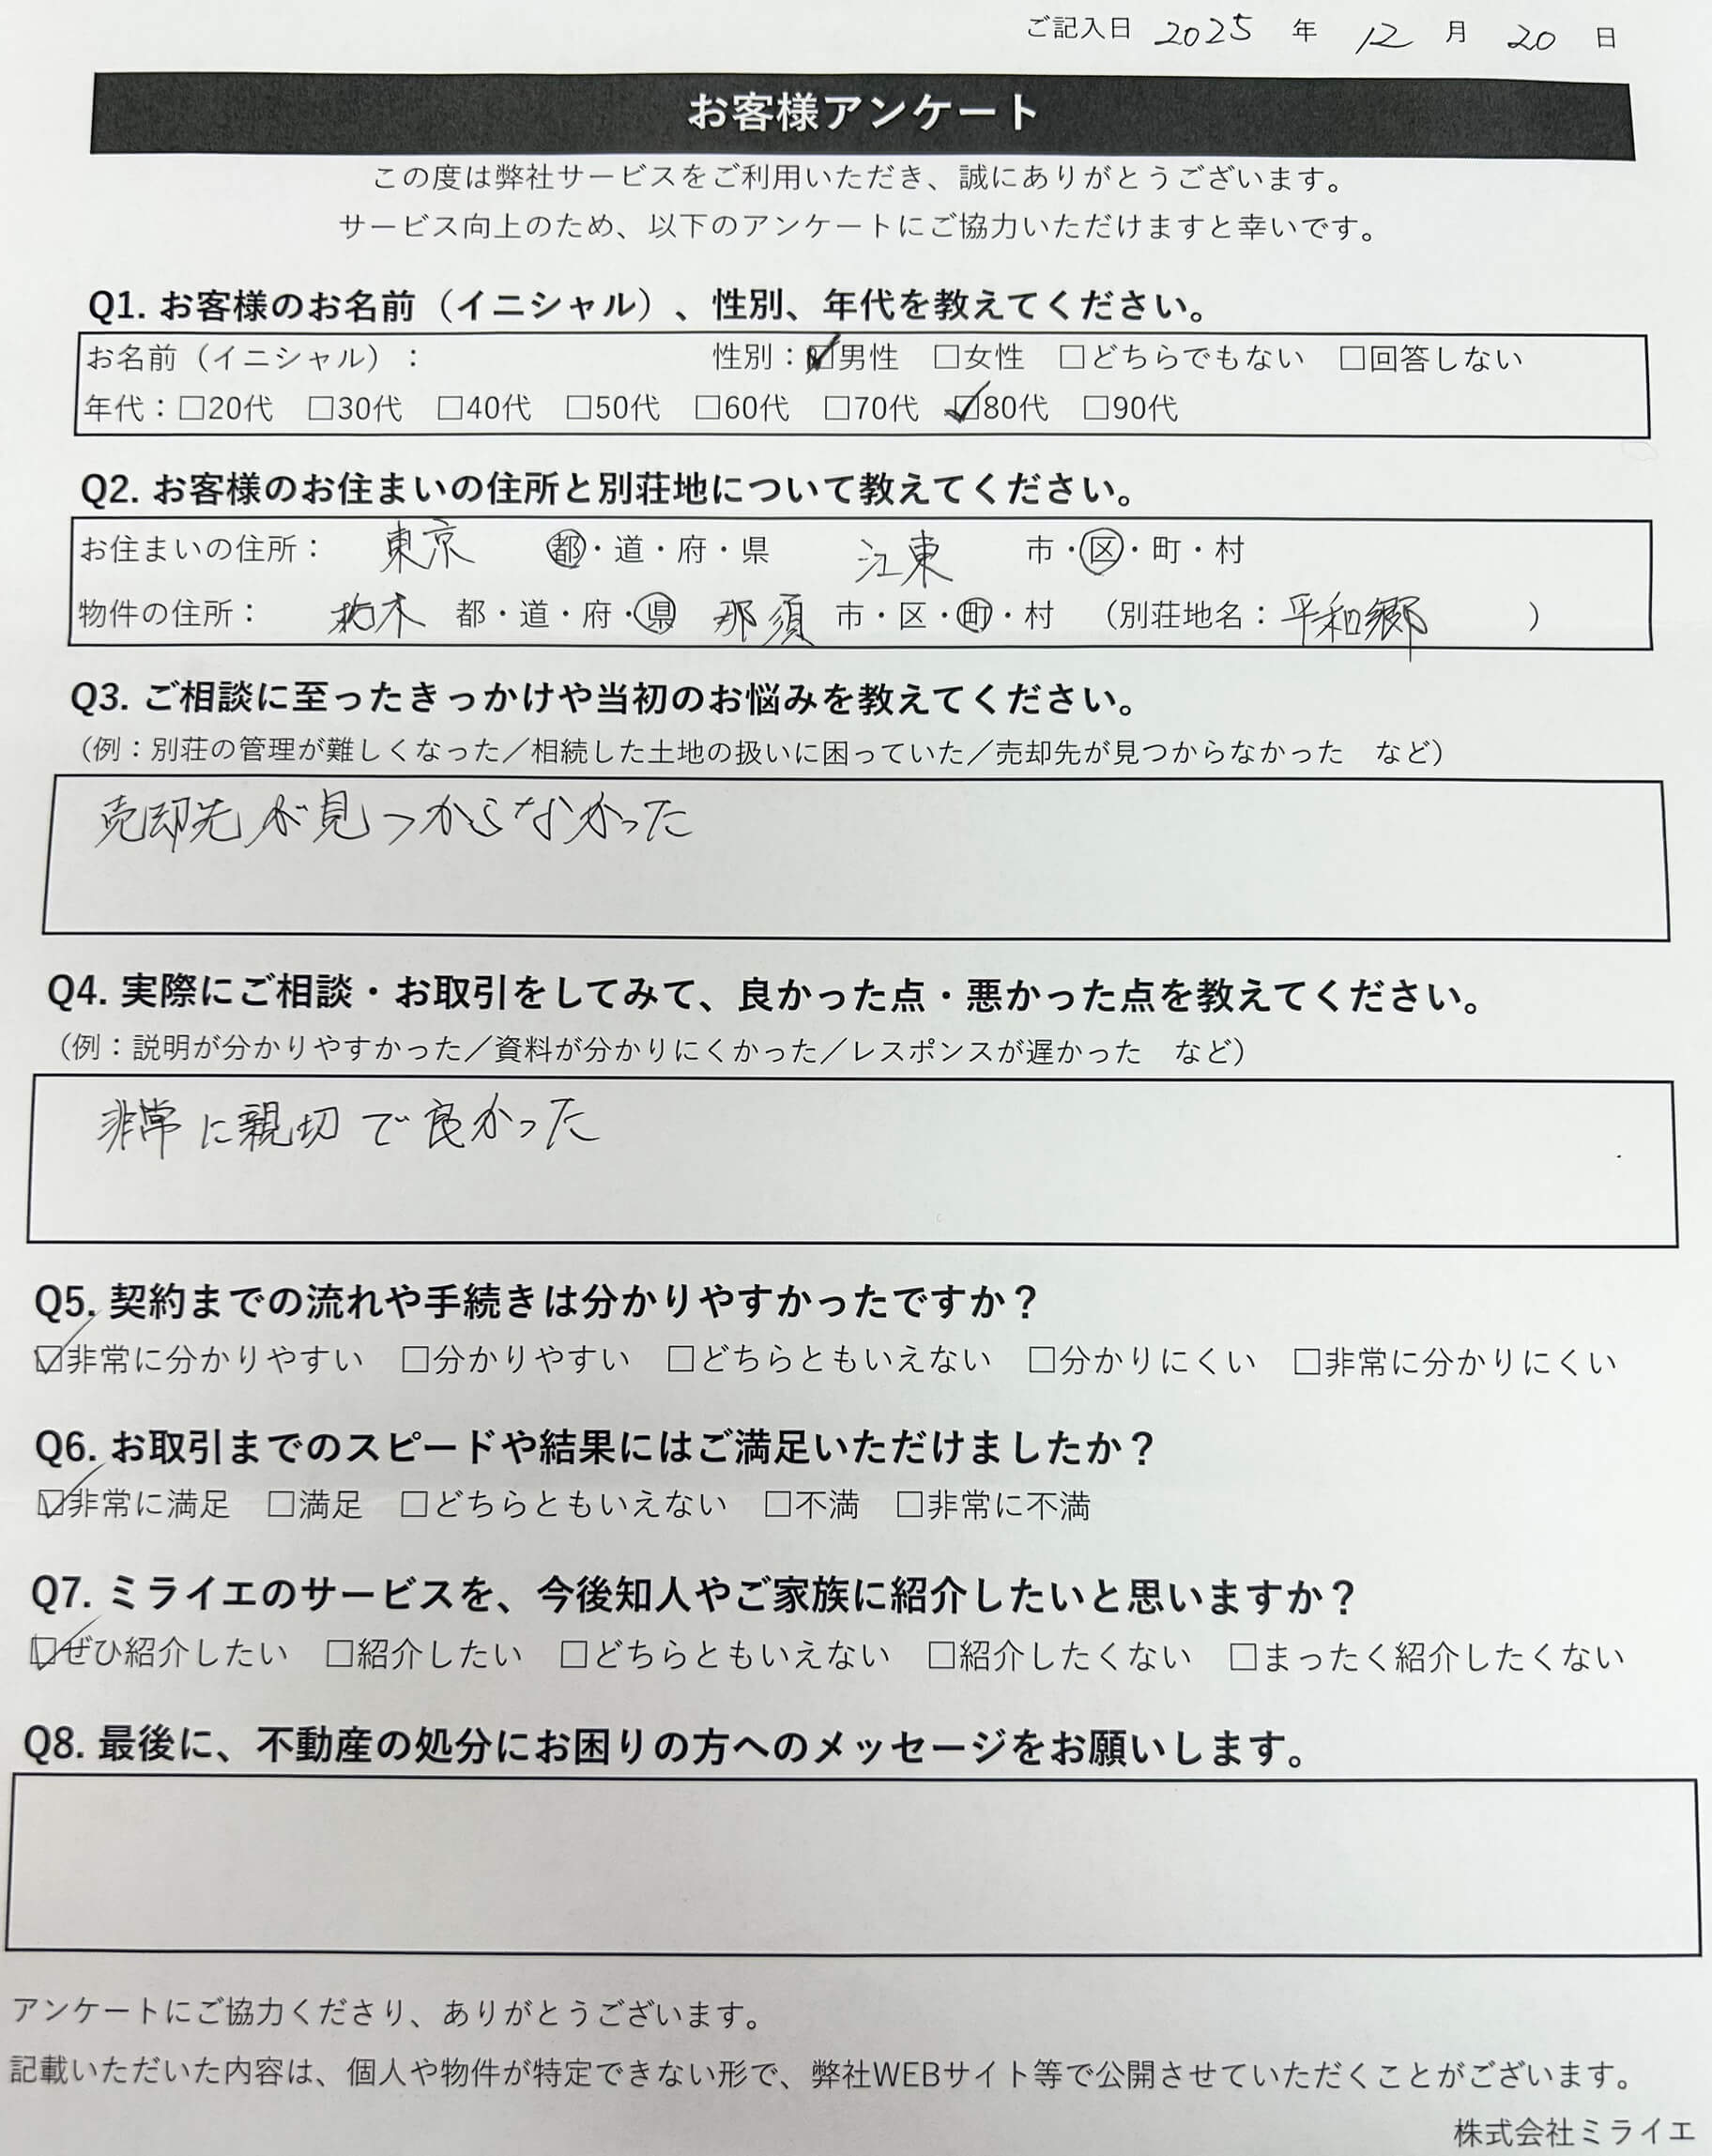 ご記入日 2025 年 12 月 20 日
お客様アンケート
この度は弊社サービスをご利用いただき、誠にありがとうございます。
サービス向上のため、以下のアンケートにご協力いただけますと幸いです。
Q1. お客様のお名前（イニシャル）、性別、年代を教えてください。
お名前（イニシャル）： 性別：☑男性 □女性 □どちらでもない □回答しない
年代：□20代 □30代 □40代 □50代 □60代 □70代 ☑80代 □90代
Q2. お客様のお住まいの住所と別荘地について教えてください。
お住まいの住所： 東京 都・道・府・県 江東 市・区・町・村
物件の住所： 栃木 都・道・府・県 那須 市・区・町・村 （別荘地名：平和郷 ）
Q3. ご相談に至ったきっかけや当初のお悩みを教えてください。
（例：別荘の管理が難しくなった／相続した土地の扱いに困っていた／売却先が見つからなかった など）
売却先が見つからなかった
Q4. 実際にご相談・お取引をしてみて、良かった点・悪かった点を教えてください。
（例：説明が分かりやすかった／資料が分かりにくかった／レスポンスが遅かった など）
非常に親切で良かった
Q5. 契約までの流れや手続きは分かりやすかったですか？
☑非常に分かりやすい □分かりやすい □どちらともいえない □分かりにくい □非常に分かりにくい
Q6. お取引までのスピードや結果にはご満足いただけましたか？
☑非常に満足 □満足 □どちらともいえない □不満 □非常に不満
Q7. ミライエのサービスを、今後知人やご家族に紹介したいと思いますか？
☑ぜひ紹介したい □紹介したい □どちらともいえない □紹介したくない □まったく紹介したくない
Q8. 最後に、不動産の処分にお困りの方へのメッセージをお願いします。
アンケートにご協力くださり、ありがとうございます。
記載いただいた内容は、個人や物件が特定できない形で、弊社WEBサイト等で公開させていただくことがございます。
株式会社ミライエ